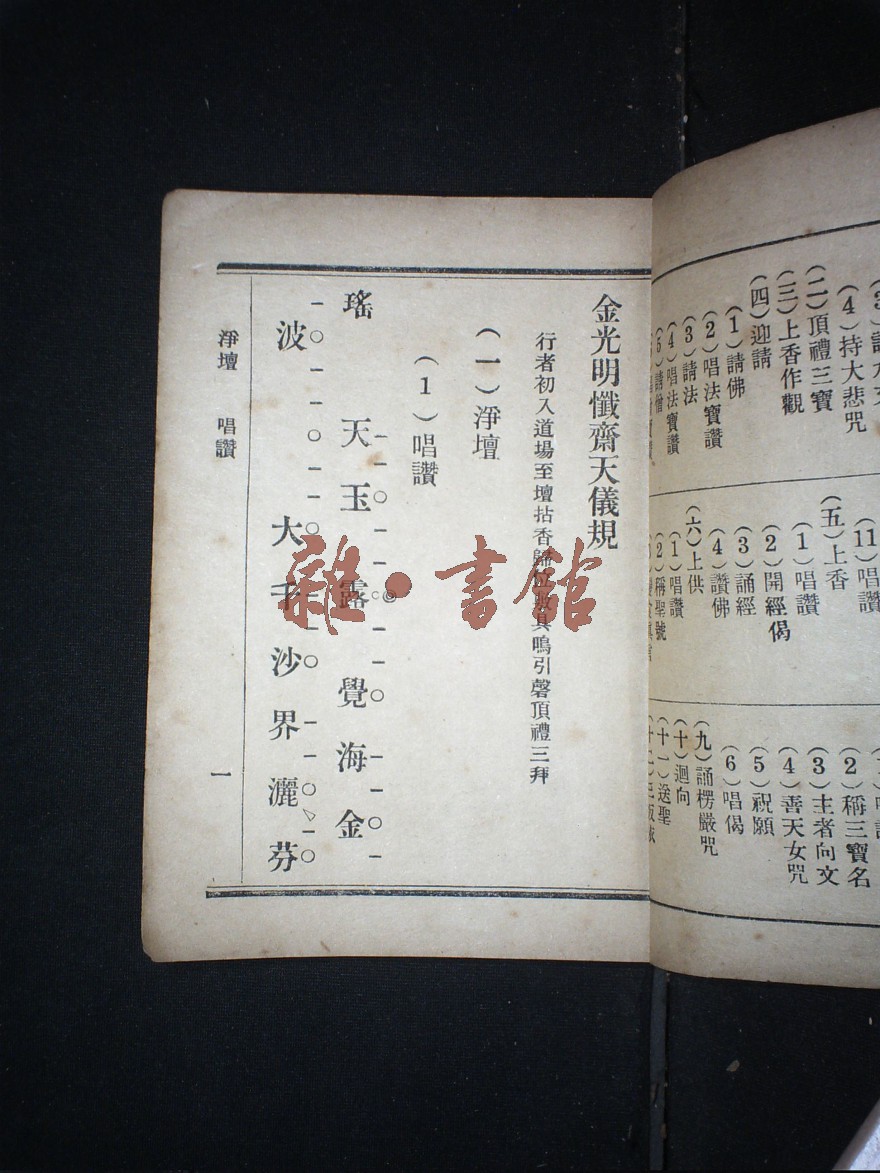 (4)持大悲咒
(二)頂禮三寶
(三)上香作觀
(四)迎請
(1)請佛
(2)唱法寶讚
(3)請法
(4)唱法寶讚
(5)請僧
(11)唱讚
(五)上香
(1)唱讚
(2)開經偈
(3)誦經
(4)讚佛
(六)上供
(1)唱讚
(2)稱聖號
(2)稱三寶名
(3)主者向文
(4)善天女咒
(5)祝願
(6)唱偈
(九)誦楞嚴咒
(十)迴向
(十一)送聖
金光明懺齋天儀規
行者初入道場至壇拈香歸位 具鳴引磬頂禮三拜
(一)淨壇
(1)唱讚
瑤天玉露覺海金
波大千沙界灑芬
淨壇 唱讚 一
雜·書館